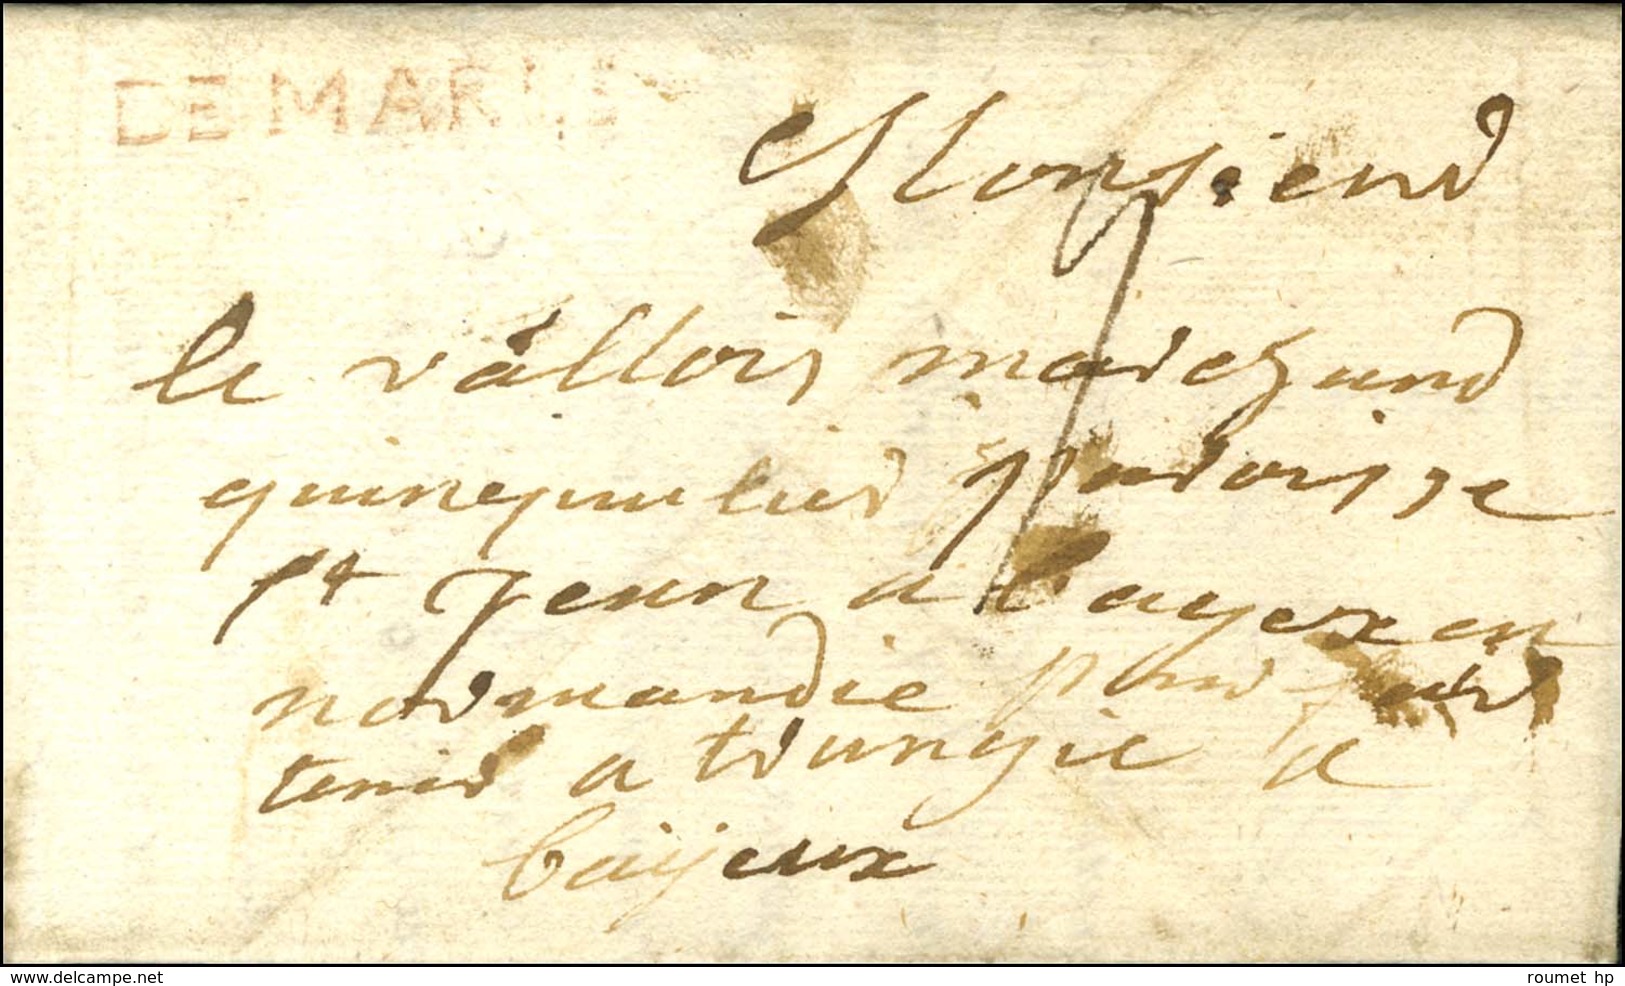 DE MARLE
Monsieur
le vallois marchand
quinqualier paroisse
st jean a bayex en
normandie pour fair
tenir a trungie a
baijeux
delcampe.net
roumet hp